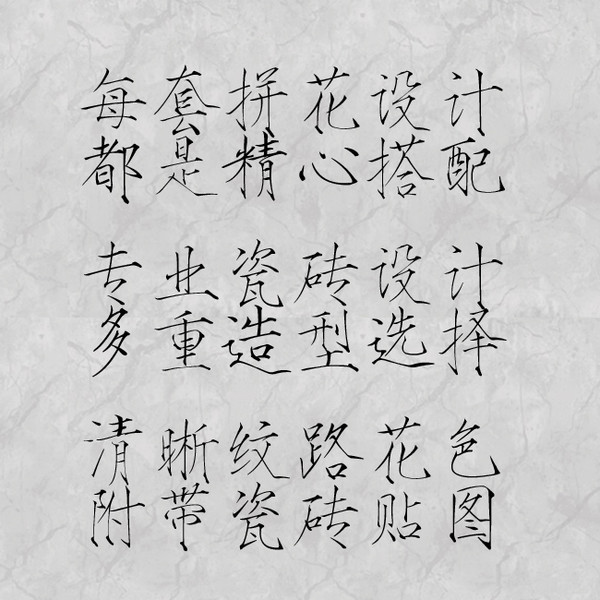 每套拼花设计
都是精心搭配
专业瓷砖设计
多重造型选择
清晰纹路花色
附带瓷砖贴图